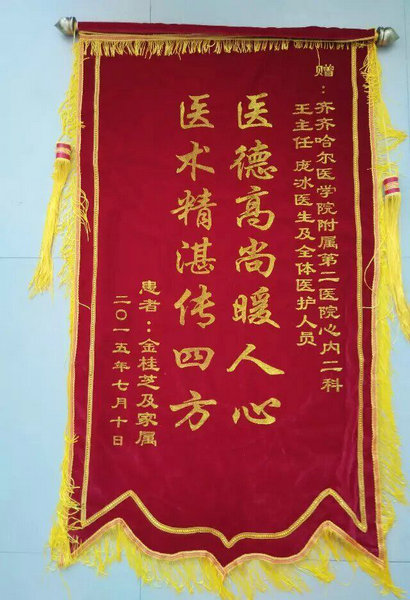 赠：齐齐哈尔医学院附属第二医院心内二科
王主任 庞冰医生及全体医护人员
医德高尚暖人心
医术精湛传四方
患者：金桂芝及家属
二〇一五年七月十日